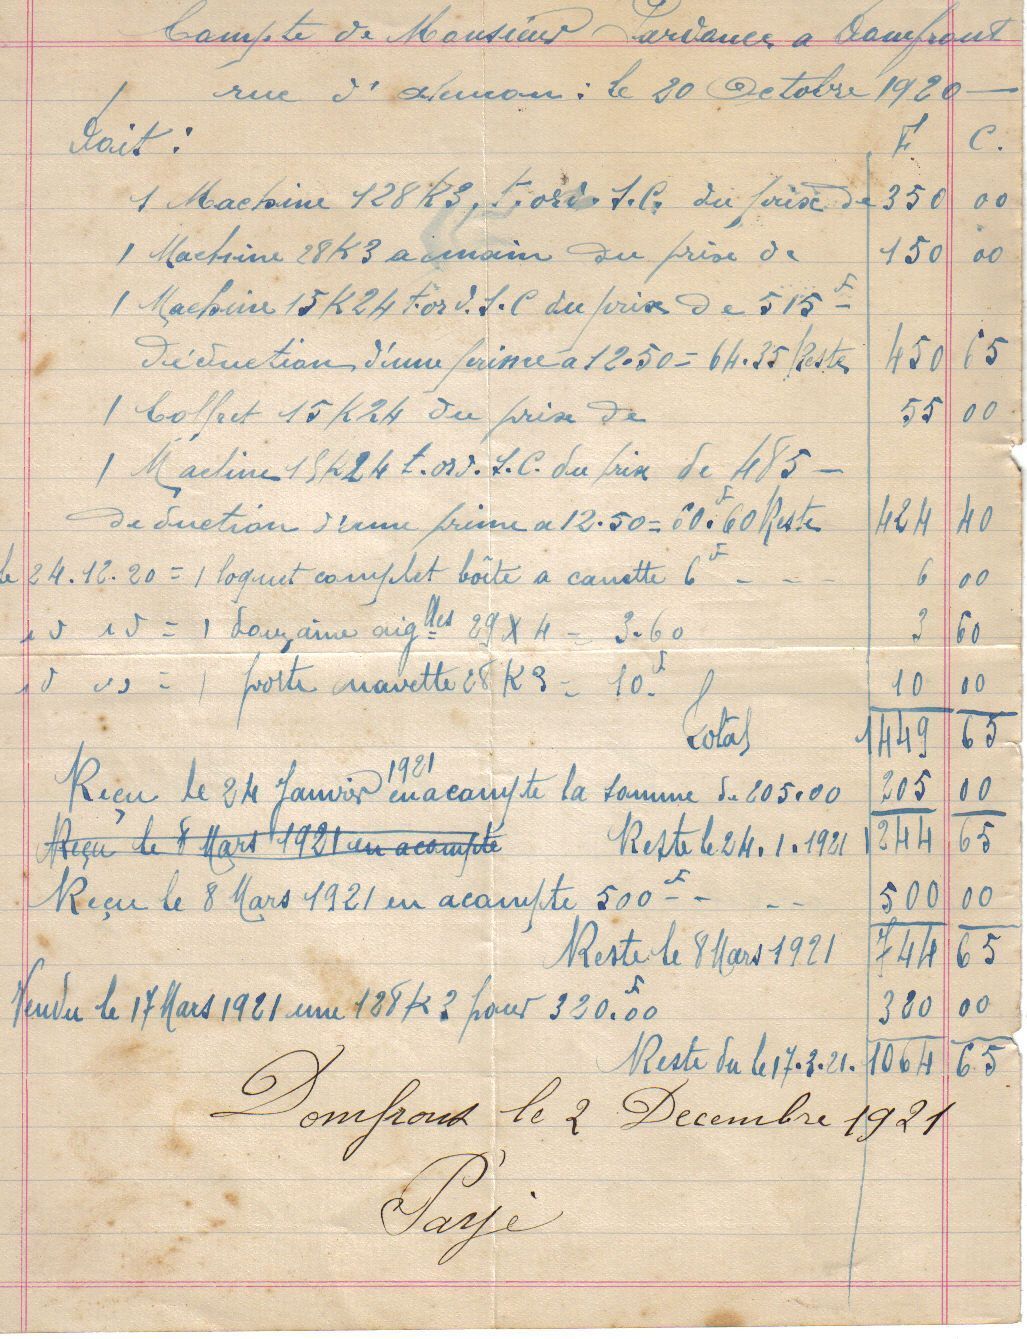 Compte de Monsieur Lardance a Domfront
rue d' : le 20 Octobre 1920 —
Doit : F C.
1 Machine 128K3, t. ord. S.C. du prix de 350 00
1 Machine 28K3 a main du prix de 150 00
1 Machine 15K24 t. ord. S.C du prix de 515 F
déduction d'une prime a 12.50 = 64.35 Reste 450 65
1 Coffret 15K24 du prix de 55 00
1 Machine 15K24 t. ord. S.C. du prix de 485 —
deduction d'une prime a 12.50 = 60.F60 Reste 424 40
le 24.12.20 = 1 loquet complet boîte a canette 6F - - - 6 00
id id = 1 douzaine aiglles 29 X 4 = 3.60 3 60
id id = 1 porte navette 28K3 = 10.F 10 00
Total 1449 65
Reçu le 24 Janvier 1921 en acompte la somme de 205.00 205 00
Reçu le 8 Mars 1921 en acompte Reste le 24.1.1921 1244 65
Reçu le 8 Mars 1921 en acompte 500F - - - - 500 00
Reste le 8 Mars 1921 744 65
Vendu le 17 Mars 1921 une 128K3 pour 320.F00 320 00
Reste du le 17.3.21. 1064 65
Domfront le 2 Decembre 1921
Payé